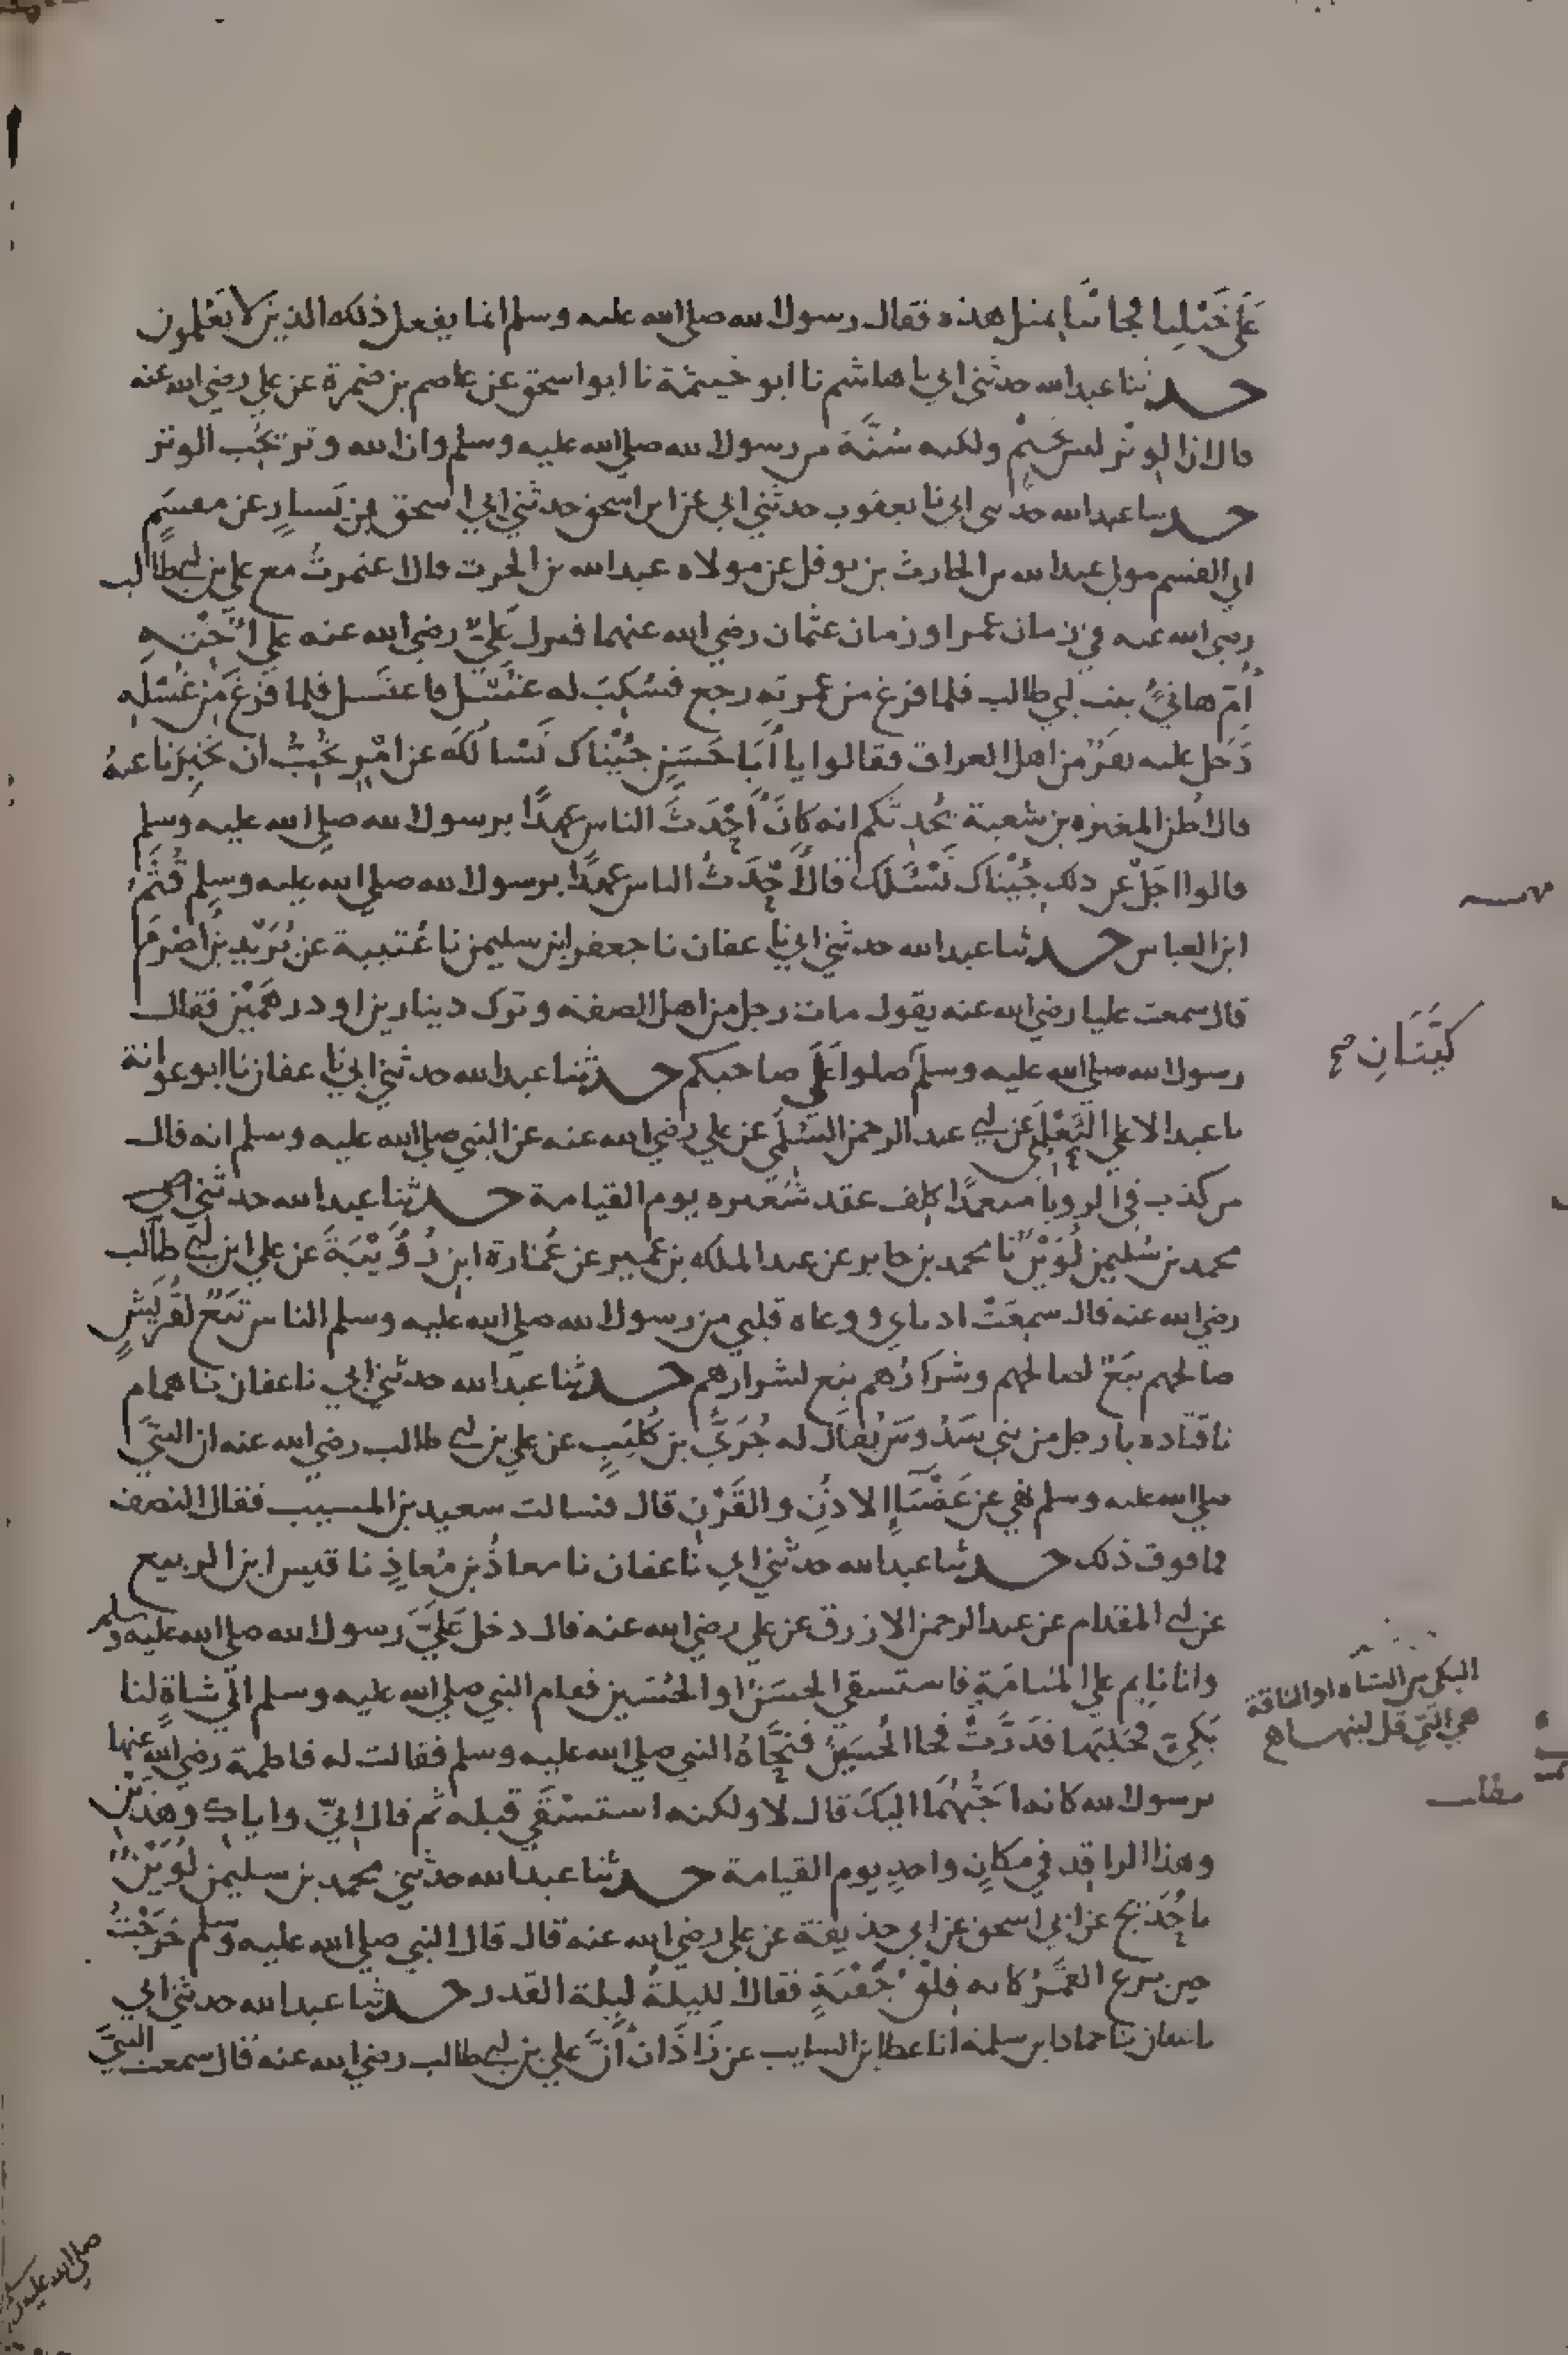 على خيلنا لجاتنا بمثل هذه فقال رسول الله صلى الله عليه وسلم انما يفعل ذلك الذين لا يَعْلمون
حدثنا عبدالله حدثني ابي نا هاشم نا ابو خيثمة نا ابو اسحق عن عاصم بن ضمرة عن علي رضي الله عنه
قال ان الوتر ليس بحَتْمٍ ولكنه سُنَّة من رسول الله صلى الله عليه وسلم وان الله وتر يحب الوتر
حدثنا عبدالله حدثني ابي نا يعقوب حدثني ابي عن ابن اسحق حدثني ابي اسحق بن يَسارٍ عن مِقسَمٍ
ابي القسم مولى عبدالله بن الحارث بن نوفل عن مولاه عبدالله بن الحرث قال اعتمرتُ مع علي بن ابي طالب
رضي الله عنه في زمان عمر او زمان عثمان رضي الله عنهما فنزل عَليٌّ رضي الله عنه على اُخْتِهِ
اُمّ هانئٍ بنت ابي طالب فلما فرغ من عمرته رجع فسُكِبَ له غُسْل فاغتسل فلما فَرَغَ مِن غُسْلِه
دَخل عليه نفَرٌ من اهل العراق فقالوا يا اَبَا حَسَنٍ جِئْناك نَسْالكَ عن اَمْرٍ نُحِبُّ ان تُخبِرَنا عنهُ
قال اظن المغيره بن شعبة يُحَدِّثكم انه كَانَ اَحْدَثَ الناس عَهدًا برسول الله صلى الله عليه وسلم
قالوا اجَلْ عن ذلك جِئْناك نَسْئلك قال اَحْدَثُ الناس عهدًا برسول الله صلى الله عليه وسلم قُثَمُ
ابن العباس حدثنا عبدالله حدثني ابي نا عفان نا جعفر بن سليمن نا عُتيبة عن بُرَيْد بن اَصْرمَ
قال سمعت عليا رضي الله عنه يقول مات رجل من اهل الصفة وترك دينارين او درهمين فقال
كَيَّتَانِ صح
رسول الله صلى الله عليه وسلم صلوا عَلَى صاحبكم حدثنا عبدالله حدثني ابي نا عفان نا ابو عوانة
نا عبد الاعلى الثَعْلَبي عن ابي عبد الرحمن السُّلَمي عن علي رضي الله عنه عن النبي صلى الله عليه وسلم انه قال
من كذب في الرويا متعمدًا كلف عقد شَعيره يوم القيامة حدثنا عبدالله حدثني
محمد بن سُليمن لُوَيْنٌ نا محمد بن جابر عن عبد الملك بن عمير عن عُمَارة ابن رُوَيْبَةَ عن علي ابن ابي طالب
رضي الله عنه قال سمعَتْ اذناي ووعاه قلبي من رسول الله صلى الله عليه وسلم الناس تَبَعٌ لقُرَيْشٍ
صالحهم تبَعٌ لصالحهم وشرارُهم تبع لشرارهم حدثنا عبدالله حدثني ابي نا عفان نا همام
نا قتاده نا رجل من بني سَدُوسَ يُقال له جُرَيُّ بن كُلَيبٍ عن علي بن ابي طالب رضي الله عنه ان النبيَّ
صلى الله عليه وسلم نهى عن عَضْبَاءِ الاذنِ والقَرْنِ قال فسالت سعيد بن المسيب فقال النصف
فما فوق ذلك حدثنا عبدالله حدثني ابي نا عفان نا معاذُ بن مُعاذٍ نا قيس ابن الربيع
عن ابي المقدام عن عبد الرحمن الازرق عن علي رضي الله عنه قال دخل عَليَّ رسول الله صلى الله عليه وسلم
وانا نايم على المنامَةِ فاستسقى الحسَنُ او الحُسَين فقام النبي صلى الله عليه وسلم الى شاةٍ لنا
البكي من الشاه او الناقة
هي التي قل لبنها
بَكِيٍّ فحَلَبَها فدَرَّتْ فجا الحُسَيْنُ فنَحَّاهُ النبي صلى الله عليه وسلم فقالت له فاطمة رضي الله عنها
يرسول الله كانه اَحَبُّهُمَا اليكَ قال لا ولكنه استسْقَى قبله ثم قال انيّ واياكِ وهذَيْنِ
وهذا الراقد في مكانٍ واحدٍ يوم القيامة حدثنا عبدالله حدثني محمد بن سليمن لُوَيْنٌ
نا حُدَيج عن ابي اسحق عن ابي حذيفة عن علي رضي الله عنه قال قال النبي صلى الله عليه وسلم خرَجْتُ
حين بزع القمَرُ كانه فِلْقُ جَفْنَةٍ فقال الليلةُ ليلة القدر حدثنا عبدالله حدثني ابي
نا عفان نا حماد بن سلمة انا عطا بن السايب عن زَاذَان اَنَّ علي بن ابي طالب رضي الله عنه قال سمعت النبيَّ
صلى الله عليه وسلم